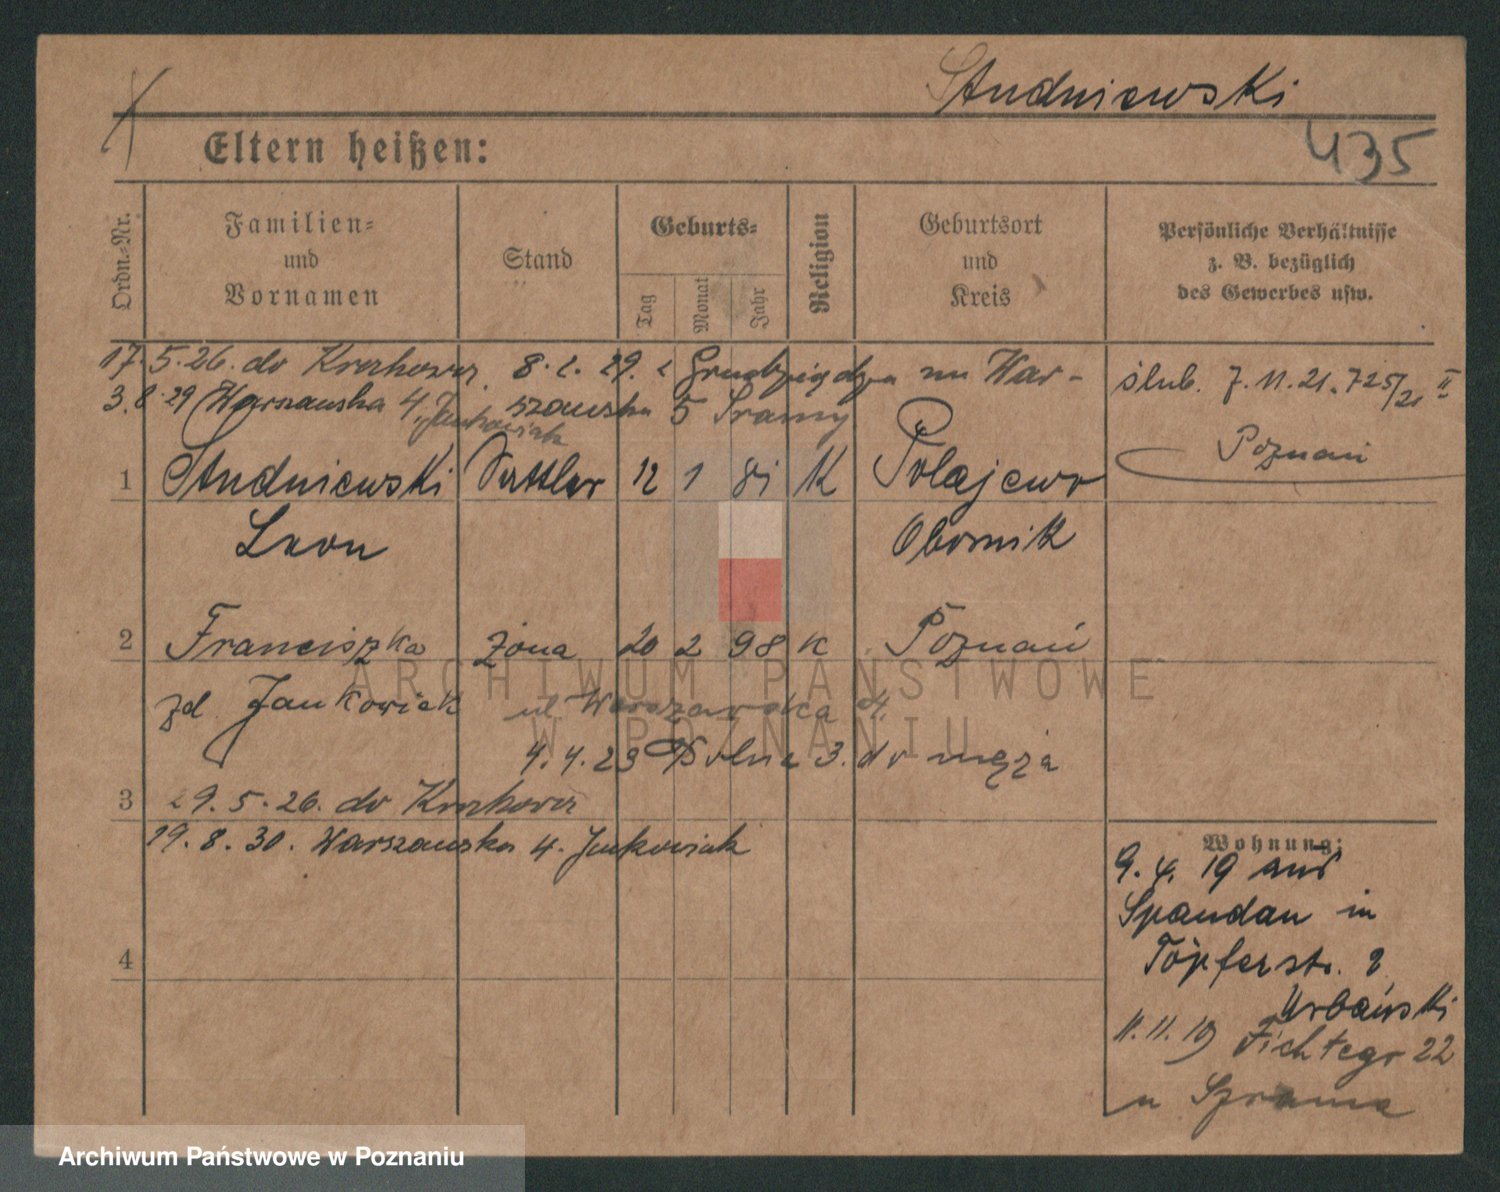 Studniewski
435
Eltern heißen:
Ordn.-Nr.
Familien-
und
Vornamen
Stand
Geburts-
Tag
Monat
Jahr
Religion
Geburtsort
und
Kreis
Persönliche Verhältnisse
z. B. bezüglich
des Gewerbes usw.
17. 5. 26. do Krakowa 8. 29. z Grudziądza na War-
3. 8. 29 Warszawska 4. Jankowiak szawska 5 Sramy
ślub. 7. 11. 21. 725/21 II
Poznań
1 Studniewski Sattler 12 1 81 K Polajewo
Leon Obornik
2 Franciszka żona 20 2 98 K Poznań
zd Jankowiak ul Warszawska 4
4. 4. 23 Polna 3. do męża
3 29. 5. 26. do Krakowa
19. 8. 30. Warszawska 4. Jankowiak
4
Wohnung:
9. 4. 19 aus
Spandau in
Töpferstr. 2
Urbański
11. 11. 19 Fichtegr 22
u Szrama
ARCHIWUM PAŃSTWOWE
W POZNANIU
Archiwum Państwowe w Poznaniu